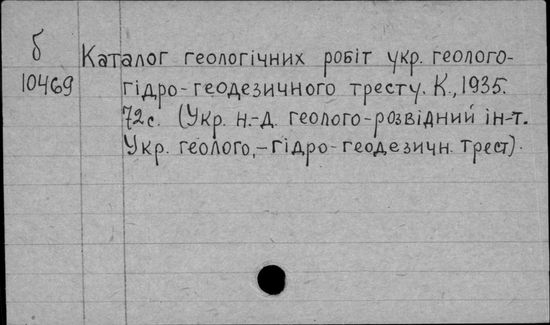 б
10469
Каталог геологічних робіт укр. геолого-
гідро-геодезичного тресту. К., 1935.
72 с. (Укр. н.-д. геолого-розвідний ін-т.
Укр. геолого,-гідро-геодезичн. трест).